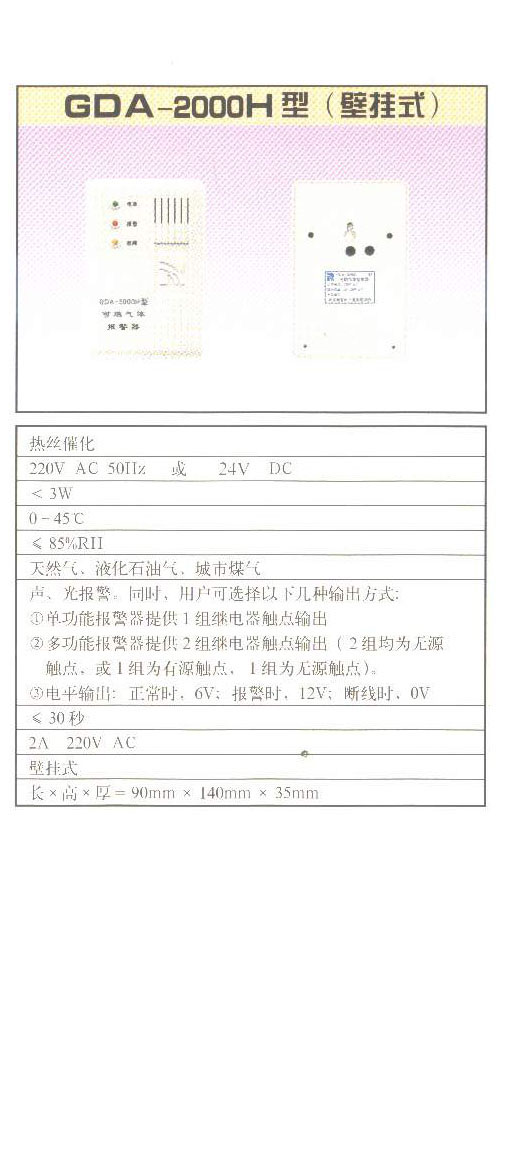 GDA-2000H 型（壁挂式）
电源
报警
故障
GDA-2000H型
可燃气体
报警器
热丝催化
220V AC 50Hz 或 24V DC
< 3W
0-45℃
≤ 85%RH
天然气、液化石油气、城市煤气
声、光报警。同时、用户可选择以下几种输出方式:
①单功能报警器提供1组继电器触点输出
②多功能报警器提供2组继电器触点输出（2组均为无源
触点、或1组为有源触点、1组为无源触点）。
③电平输出: 正常时、6V; 报警时、12V; 断线时、0V
≤ 30秒
2A 220V AC
壁挂式
长×高×厚=90mm × 140mm × 35mm